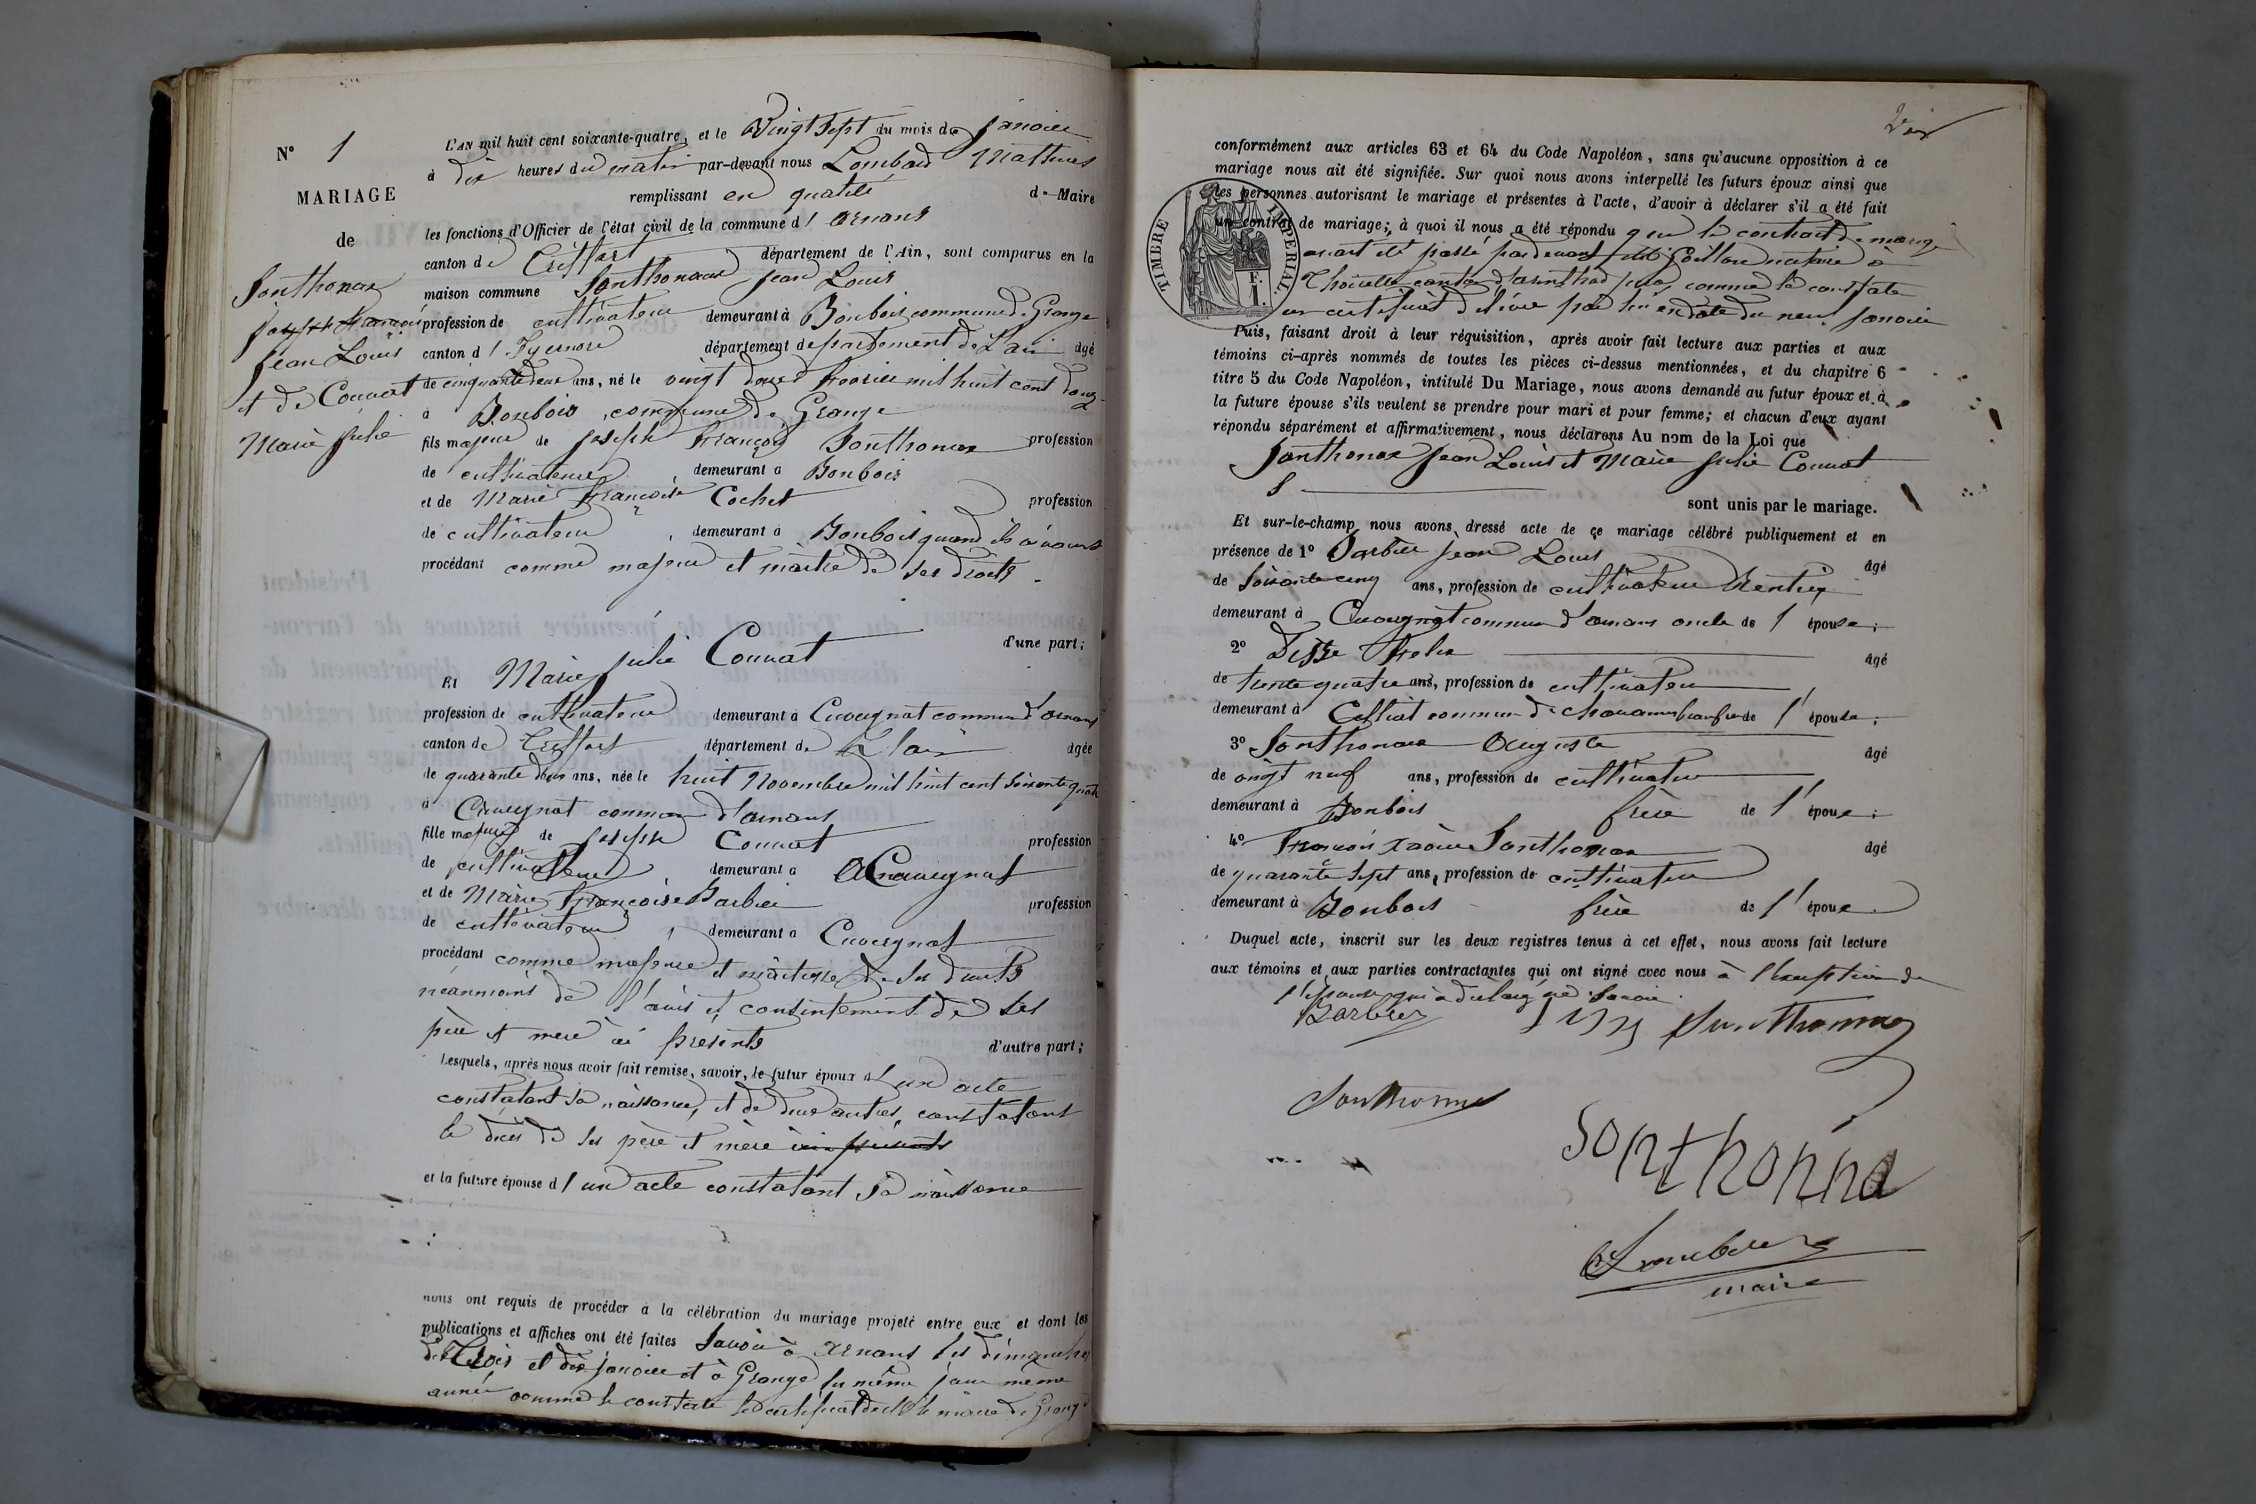 N° 1
MARIAGE
de
Sonthonax
Joseph François
Jean Louis
et de Connat
Marie Julie
L'AN mil huit cent soixante-quatre, et le Vingt Sept du mois de Janvier
à dix heures du matin par-devant nous Lombard Mathieu
remplissant en qualité de Maire
les fonctions d'Officier de l'état civil de la commune d' Arnans
canton de Treffort département de l'Ain, sont comparus en la
maison commune Sonthonax Jean Louis
profession de cultivateur demeurant à Bonbois commune de Grange
canton d' Izernore département département de L'ain âgé
de cinquante deux ans, né le vingt deux février mil huit cent douze
à Bonbois, commune de Grange
fils majeur de Joseph François Sonthonax profession
de cultivateur demeurant à Bonbois
et de Marie Françoise Cochet profession
de cultivateur, demeurant à Bonbois quand ils vivaient
procédant comme majeur et maitre de ses droits.
d'une part;
Et Marie Julie Connat
profession de cultivateur demeurant à Cuvergnat commune d'arnans
canton de Treffort département de L'ain âgée
de quarante deux ans, née le huit Novembre mil huit cent soixante quatre
à Cuvergnat commune d'arnans
fille majeure de Joseph Connat profession
de cultivateur demeurant à A Cuvergnat
et de Marie Françoise Barbier profession
de cultivateur, demeurant à Cuvergnat
procédant comme majeure et maitresse de ses droits
néanmoins de l'avis et consentement de ses
père et mère ici présents d'autre part;
Lesquels, après nous avoir fait remise, savoir, le futur époux d' un acte
constatant sa naissance, et de deux autres, constatant
le décès de ses père et mère ici présents
et la future épouse d' un acte constatant sa naissance
nous ont requis de procéder à la célébration du mariage projeté entre eux et dont les
publications et affiches ont été faites Savoir à Arnans les dimanches
des Trois et dix janvier et à Grange les même jour même
année comme le constate le certificat de le maire de Grange
conformément aux articles 63 et 64 du Code Napoléon, sans qu'aucune opposition à ce
mariage nous ait été signifiée. Sur quoi nous avons interpellé les futurs époux ainsi que
les personnes autorisant le mariage et présentes à l'acte, d'avoir à déclarer s'il a été fait
un contrat de mariage; à quoi il nous a été répondu que le contrat de mariage
TIMBRE IMPERIAL
F.
1.
avait été passé pardevant Me Goillon notaire à
Thoirette canton d'arinthod jura, comme le constate
un certificat délivré par lui en date du neuf janvier
Puis, faisant droit à leur réquisition, après avoir fait lecture aux parties et aux
témoins ci-après nommés de toutes les pièces ci-dessus mentionnées, et du chapitre 6
titre 5 du Code Napoléon, intitulé Du Mariage, nous avons demandé au futur époux et à
la future épouse s'ils veulent se prendre pour mari et pour femme; et chacun d'eux ayant
répondu séparément et affirmativement, nous déclarons Au nom de la Loi que
Sonthonax Jean Louis et Marie Julie Connat
sont unis par le mariage.
Et sur-le-champ nous avons dressé acte de ce mariage célébré publiquement et en
présence de 1° Barbier Jean Louis âgé
de Soixante cinq ans, profession de cultivateur Rentier
demeurant à Cuvergnat commune d'arnans oncle de l' épouse;
2° Disse Felix âgé
de trente quatre ans, profession de cultivateur
demeurant à Cessiat commune de chavannes de l' épouse;
3° Sonthonax Auguste âgé
de vingt neuf ans, profession de cultivateur
demeurant à Bonbois frère de l' époux;
4° François Xavier Sonthonax âgé
de quarante sept ans, profession de cultivateur
demeurant à Bonbois frère de l' époux.
Duquel acte, inscrit sur les deux registres tenus à cet effet, nous avons fait lecture
aux témoins et aux parties contractantes qui ont signé avec nous à l'exception de
l'épouse qui a déclaré ne savoir.
Barbier Sonthonnax
Sonthonnax
Sonthonna
Lombard
maire